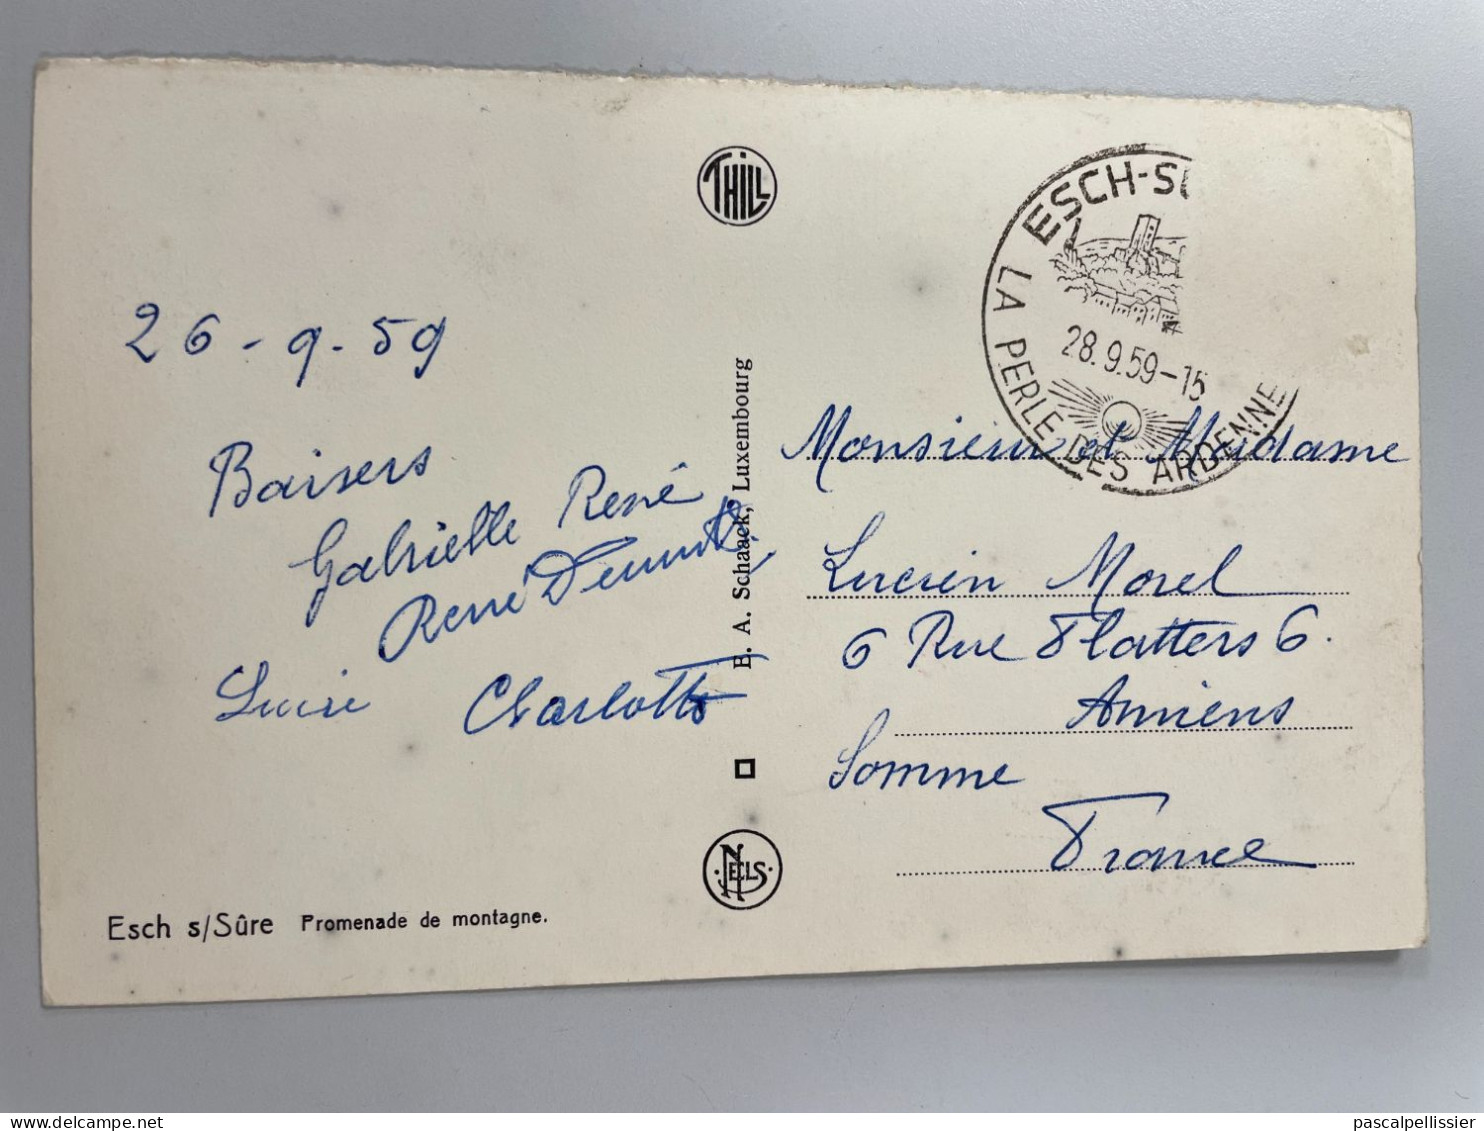 THILL
ESCH-SÛ
LA PERLE DES ARDENNE
28.9.59-15
26-9-59
Baisers
Gabrielle René
René
Lucie Charlotte
E. A. Schaack, Luxembourg
Monsieur et Madame
Lucien Morel
6 Rue Flatters 6.
Amiens
Somme
France
NELS
Esch s/Sûre Promenade de montagne.
pascalpellissier